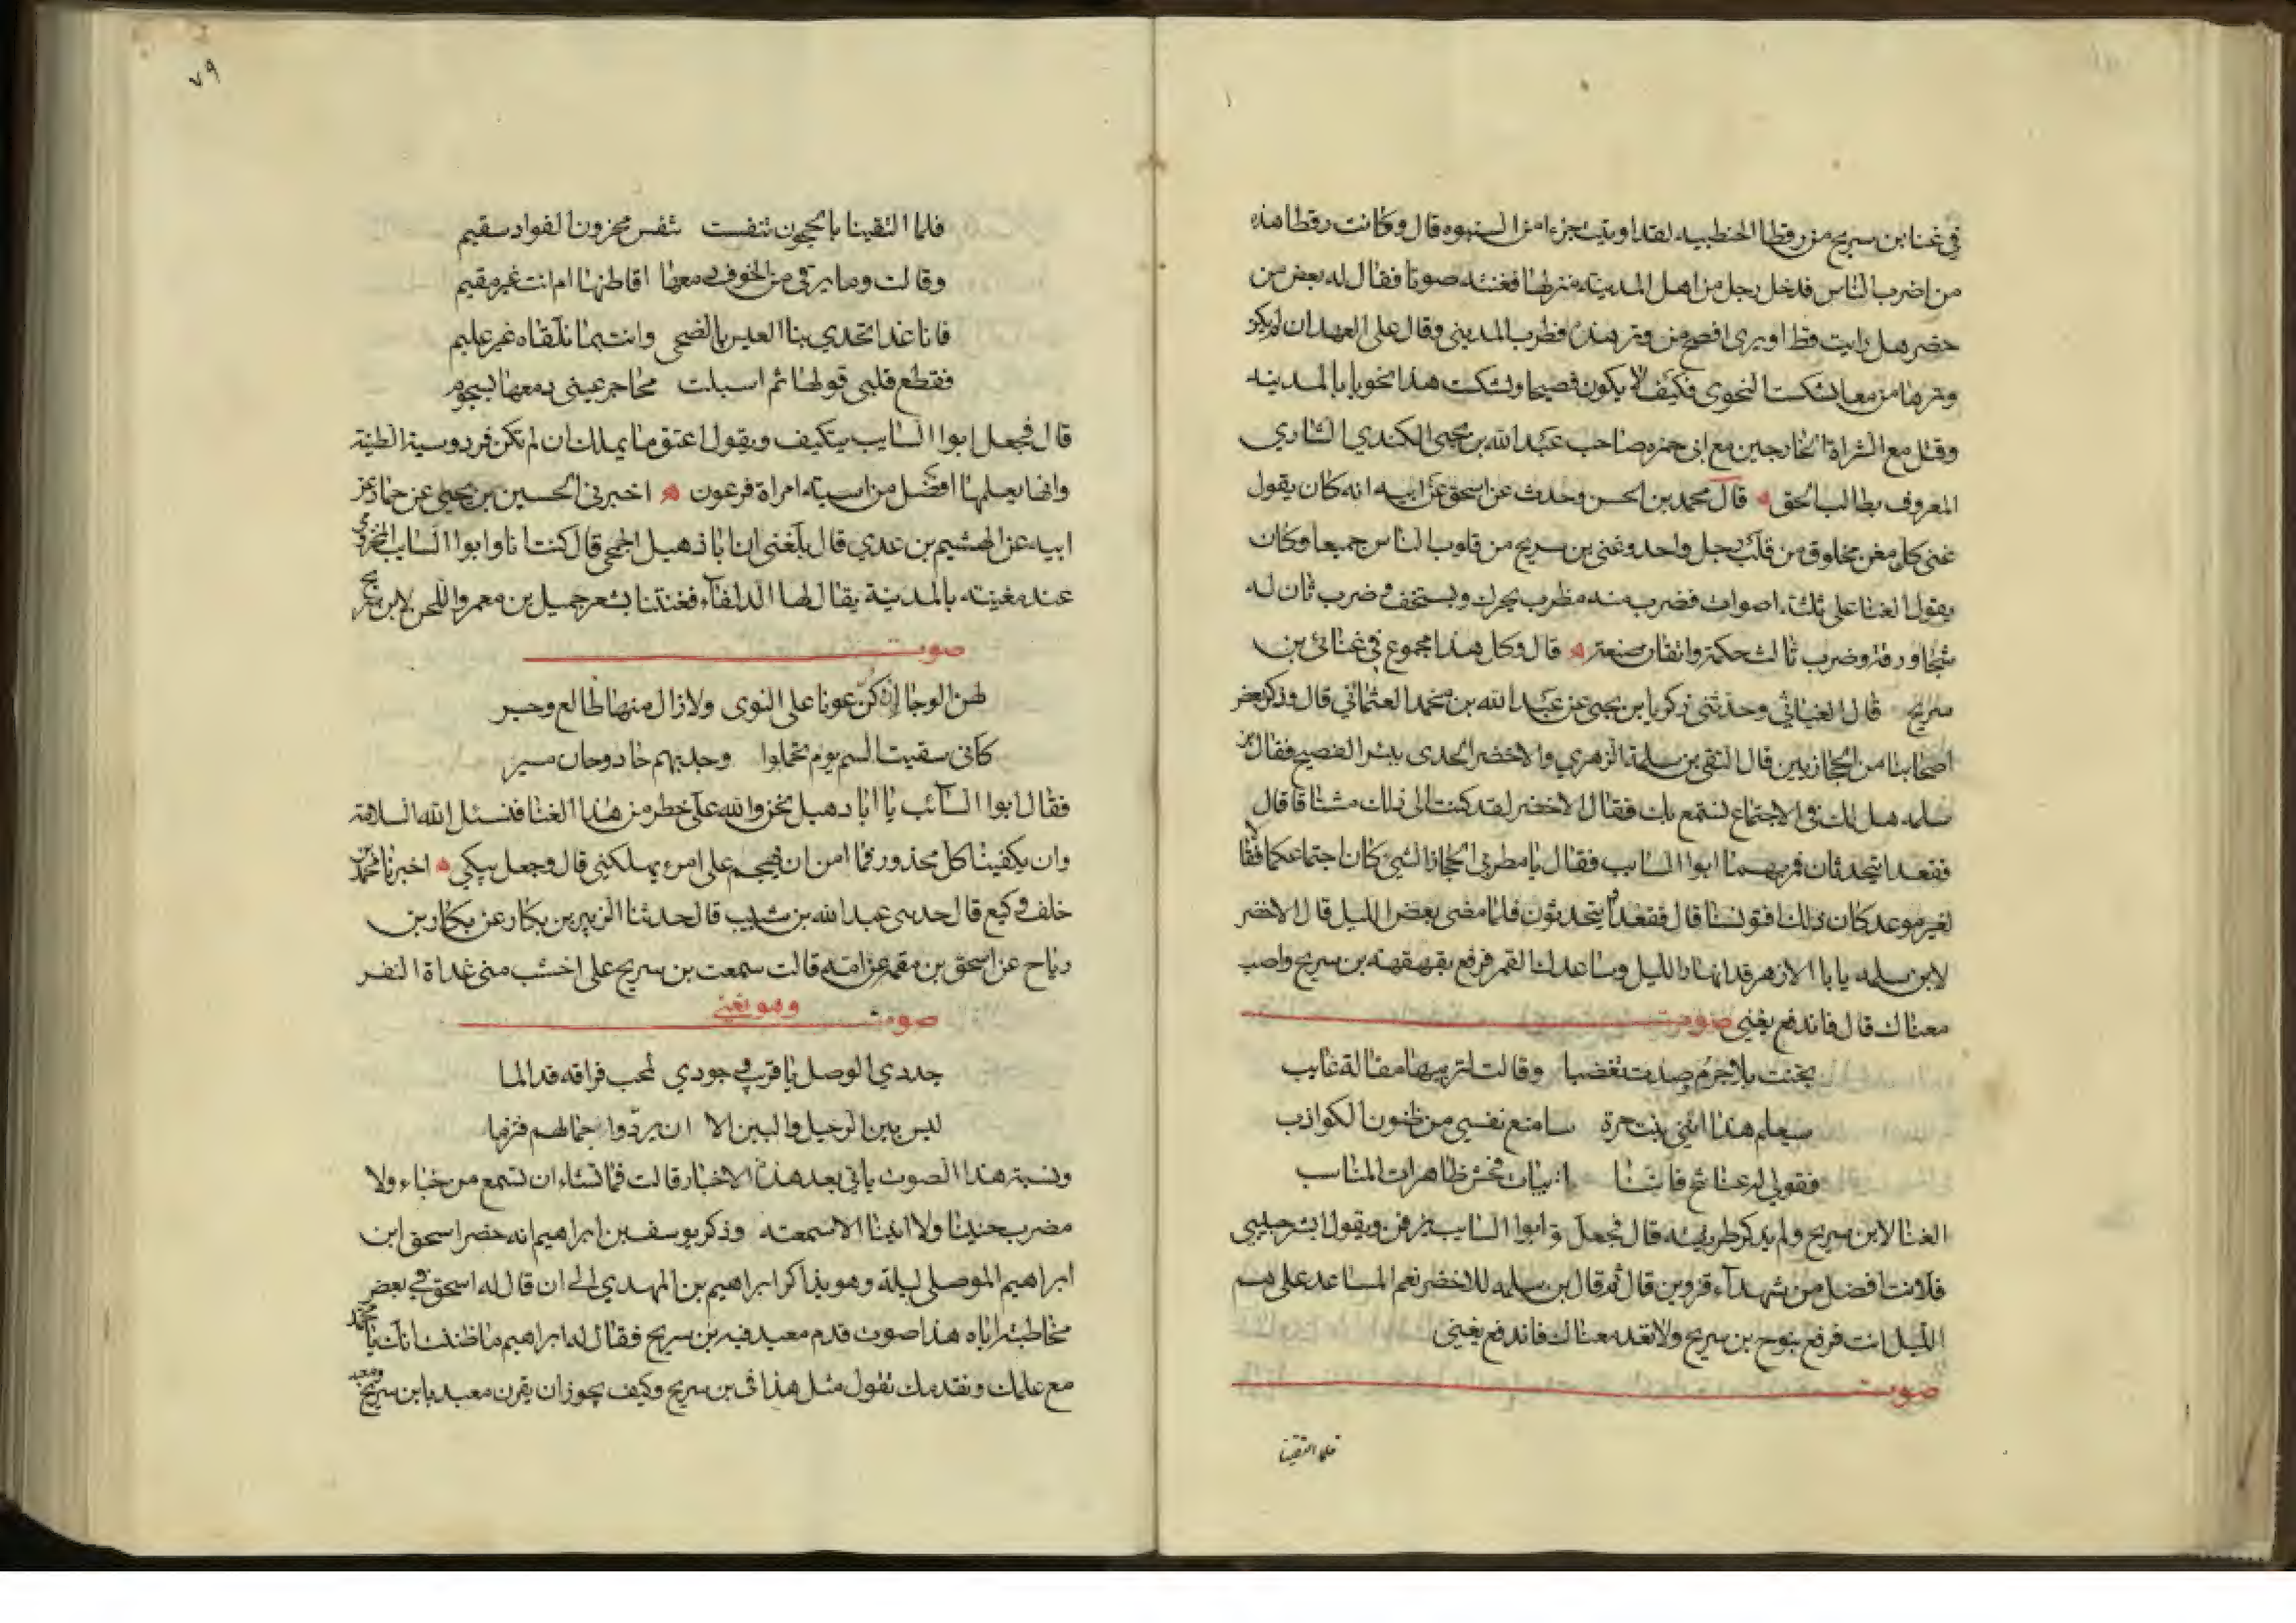 في غنا بن سريج من رقطا الحنطبيه لقد اوتيت جزءا من النبوه قال وكانت رقطا هذه
من اضرب الناس فدخل رجل من اهل المدينة منزلها فغنته صوتا فقال له بعض من
حضر هل رايت قط او يرى افصح من وتر هذه فطرب المديني وقال على العهد ان لم يكن
وترها من معا بشكست النحوي فكيف لا يكون فصيحا وبشكست هذا نحويا بالمدينه
وقتل مع الشراة الخارجين مع ابى حمزه صاحب عبد الله بن يحيى الكندي الشاري
المعروف بطالب الحق ه قال محمد بن الحسن وحدث عن اسحق عن ابيه انه كان يقول
غنى كل مغن مخلوق من قلب رجل واحد وغنى بن سريج من قلوب الناس جميعا وكان
يقول الغنا على ثلثة اصوات فضرب منه مطرب يحرك ويستخف وضرب ثان له
شجا ورقة وضرب ثالث حكمة واتقان صنعة ه قال وكل هذا مجموع في غنائ بن
سريج قال الغياثي وحدثنى زكريا بن يحيى عن عبد الله بن محمد العثماني قال وذكر بعض
اصحابنا من الحجازيين قال التقى بن سلمة الزهري والاخضر الجدى ببئر الفصيح فقال بن
سلمه هل لك في الاجتماع نستمع بك فقال الاخضر لقد كنت الى ذلك مشتاقا قال
فقعدا يتحدثان فمر بهما ابوا السايب فقال يا مطربى الحجاز الشئ كان اجتماعكما فقالا
لغير موعد كان ذلك افتونسنا قال فقعدوا يتحدثون فلما مضى بعض الليل قال الاخضر
لابن سلمه يا با الازهر قد ابهار الليل وساعدك القمر فرفع بقهقهة بن سريج واصب
معناك قال فاندفع يغنى صوت
تجنت بلا جرم وصدت تغضبا وقالت لتربيها مقالة عاتب
سيعلم هذا انني بنت حرة سامنع نفسي من ظنون الكواذب
فقولي له عنا تنح فاننا ابيات فحش ظاهرات المناسب
الغنا لابن سريج ولم يذكر طريقته قال فجعل ابوا السايب يزفن ويقول ابشر حبيبى
فلانت افضل من شهداء قزوين قال ثم قال بن سلمه للاخضر نعم المساعد على هم
الليل انت فرفع بنوح بن سريج ولا تعد معناك فاندفع يغنى
صوت
فلما التقينا
٧٩
فلما التقينا بالحجون تنفست تنفس محزون الفواد سقيم
وقالت وما يرقى من الخوف دمعها اقاطنها ام انت غير مقيم
فانا غدا تحدي بنا العيس بالضحى وانت بما نلقاه غير عليم
فقطع قلبي قولها ثم اسبلت محاجر عينى دمعها بسجوم
قال فجعل ابوا السايب يتكيف ويقول اعتق ما يملك ان لم تكن فردوسية الطينة
وانها بعلمها افضل من اسية امراة فرعون ه اخبرنى الحسين بن يحيى عن حماد عن
ابيه عن الهشيم بن عدي قال بلغنى ان ابا دهبل الجمحى قال كنت انا وابوا السايب المخزومى
عند مغنيته بالمدينة يقال لها الدلفآء فغنتنا بشعر جميل بن معمر واللحن لابن سريج
صوت
لهن الوجا ان كنّ عونا على النوى ولا زال منها ظالع وحسير
كانى سقيت السم يوم تحملوا وجد بهم حاد وحان مسير
فقال ابوا السآئب يا ابا دهبل نحن والله على خطر من هذا الغنا فنسئل الله السلامة
وان يكفينا كل محذور فما امن ان يهجم على امرء يهلكنى قال وجعل يبكي ه اخبرنا محمد بن
خلف وكيع قال حدثنى عبد الله بن شبيب قال حدثنا الزبير بن بكار عن بكار بن
رباح عن اسحق بن مقمة عن امه قالت سمعت بن سريج على اخشب منى غداة النفر
وهو يغني
صوت
جددي الوصل يا قريب وجودي لمحب فراقه قد الما
ليس بين الرحيل والبين الا ان يردّوا جمالهم فتزما
ونسبة هذا الصوت ياتى بعد هذه الاخبار قالت فما تشاء ان تسمع من خباء ولا
مضرب حنينا ولا انينا الا سمعته وذكر يوسف بن ابراهيم انه حضر اسحق ابن
ابراهيم الموصلى ليلة وهو يذاكر ابراهيم بن المهدي الى ان قال له اسحق في بعض
مخاطبته اياه هذا صوت قدم معبد فيه بن سريج فقال له ابراهيم ما ظننت انك يا محمد
مع علمك وتقدمك تقول مثل هذا في بن سريج وكيف يجوز ان يقرن معبد بابن سريج ومعبد